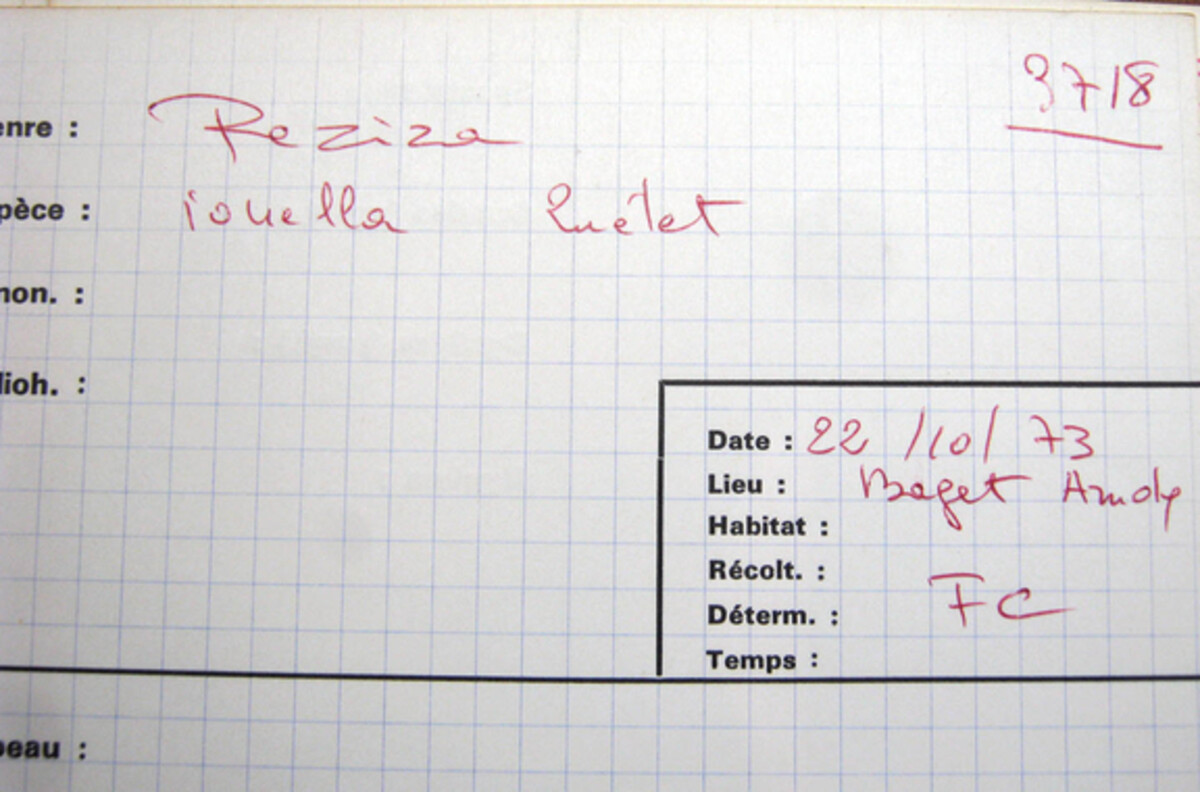 3718
enre : Peziza
pèce : ionella Quélet
non. :
lioh. :
Date : 22/10/73
Lieu : Baget
Habitat :
Récolt. :
Déterm. : FC
Temps :
peau :